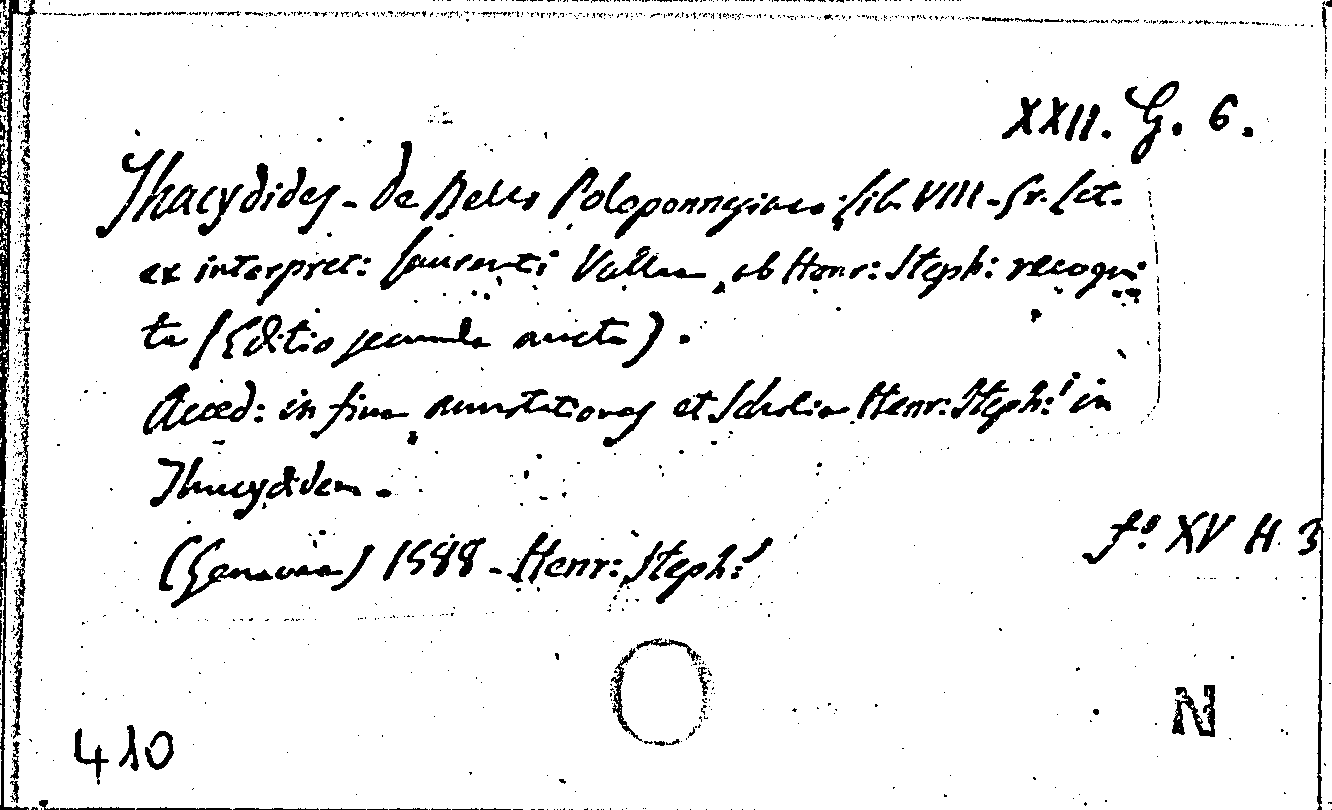 XXII. G. 6.
Thucydides - de Bello Peloponnesiaco lib. VIII - Gr. Lat.
ex interpret: Laurenti Vallae ab Henr: Steph: recogni
ta (Editio secunda aucta).
Acced: in fine annotationes et Scholia Henr: Steph: in
Thucydidem.
(Genavae) 1588 - Henr: Steph:
fº XV H. 3
N
410